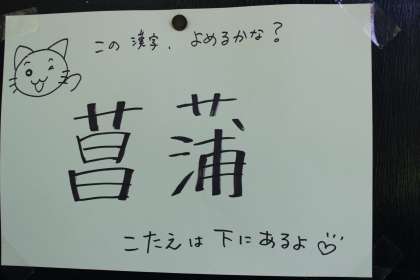 この漢字、よめるかな?
菖蒲
こたえは下にあるよ♡